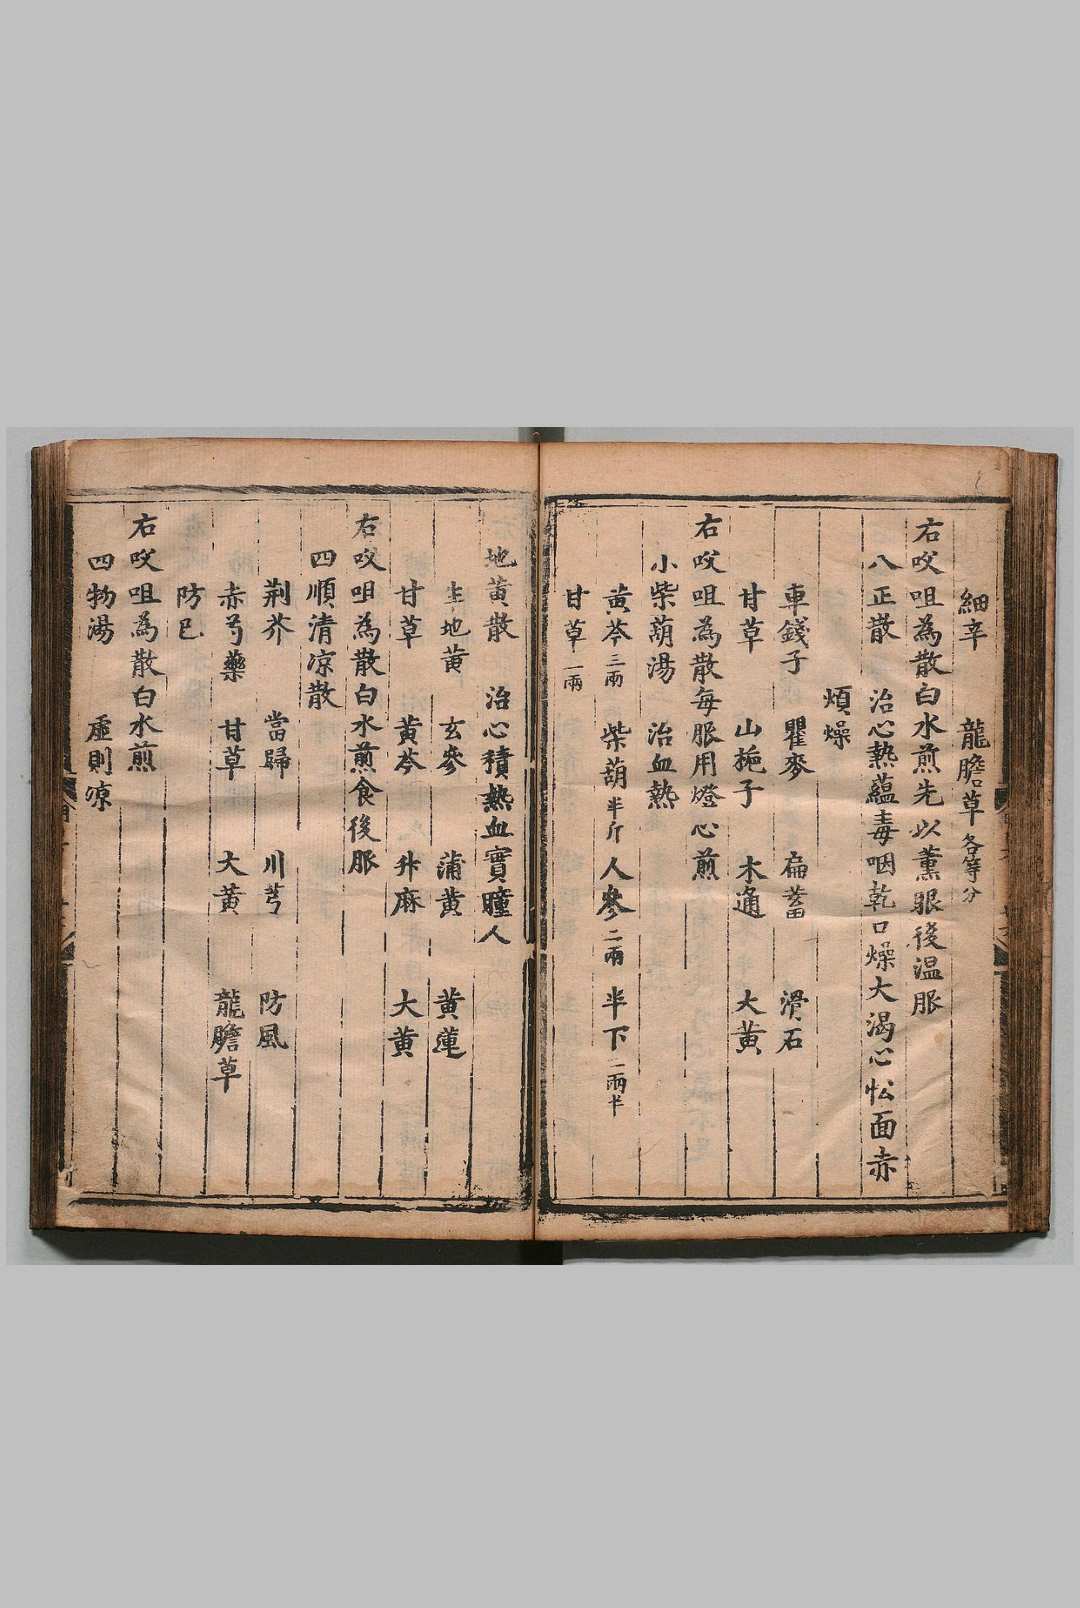 細辛 龍膽草 各等分
右㕮咀為散白水煎先以薰眼後温服
八正散 治心熱蘊毒咽乾口燥大渴心忪面赤
煩燥
車錢子 瞿麥 扁蓄 滑石
甘草 山梔子 木通 大黃
右㕮咀為散每服用燈心煎
小柴葫湯 治血熱
黃芩 三兩 柴葫 半斤 人參 二兩 半下 一兩半
甘草 一兩
地黃散 治心積熱血實瞳人
生地黃 玄參 蒲黃 黃蓮
甘草 黃芩 升麻 大黃
右㕮咀為散白水煎食後服
四順清凉散
荆芥 當歸 川芎 防風
赤芍藥 甘草 大黃 龍膽草
防巳
右㕮咀為散白水煎
四物湯 虛則凉